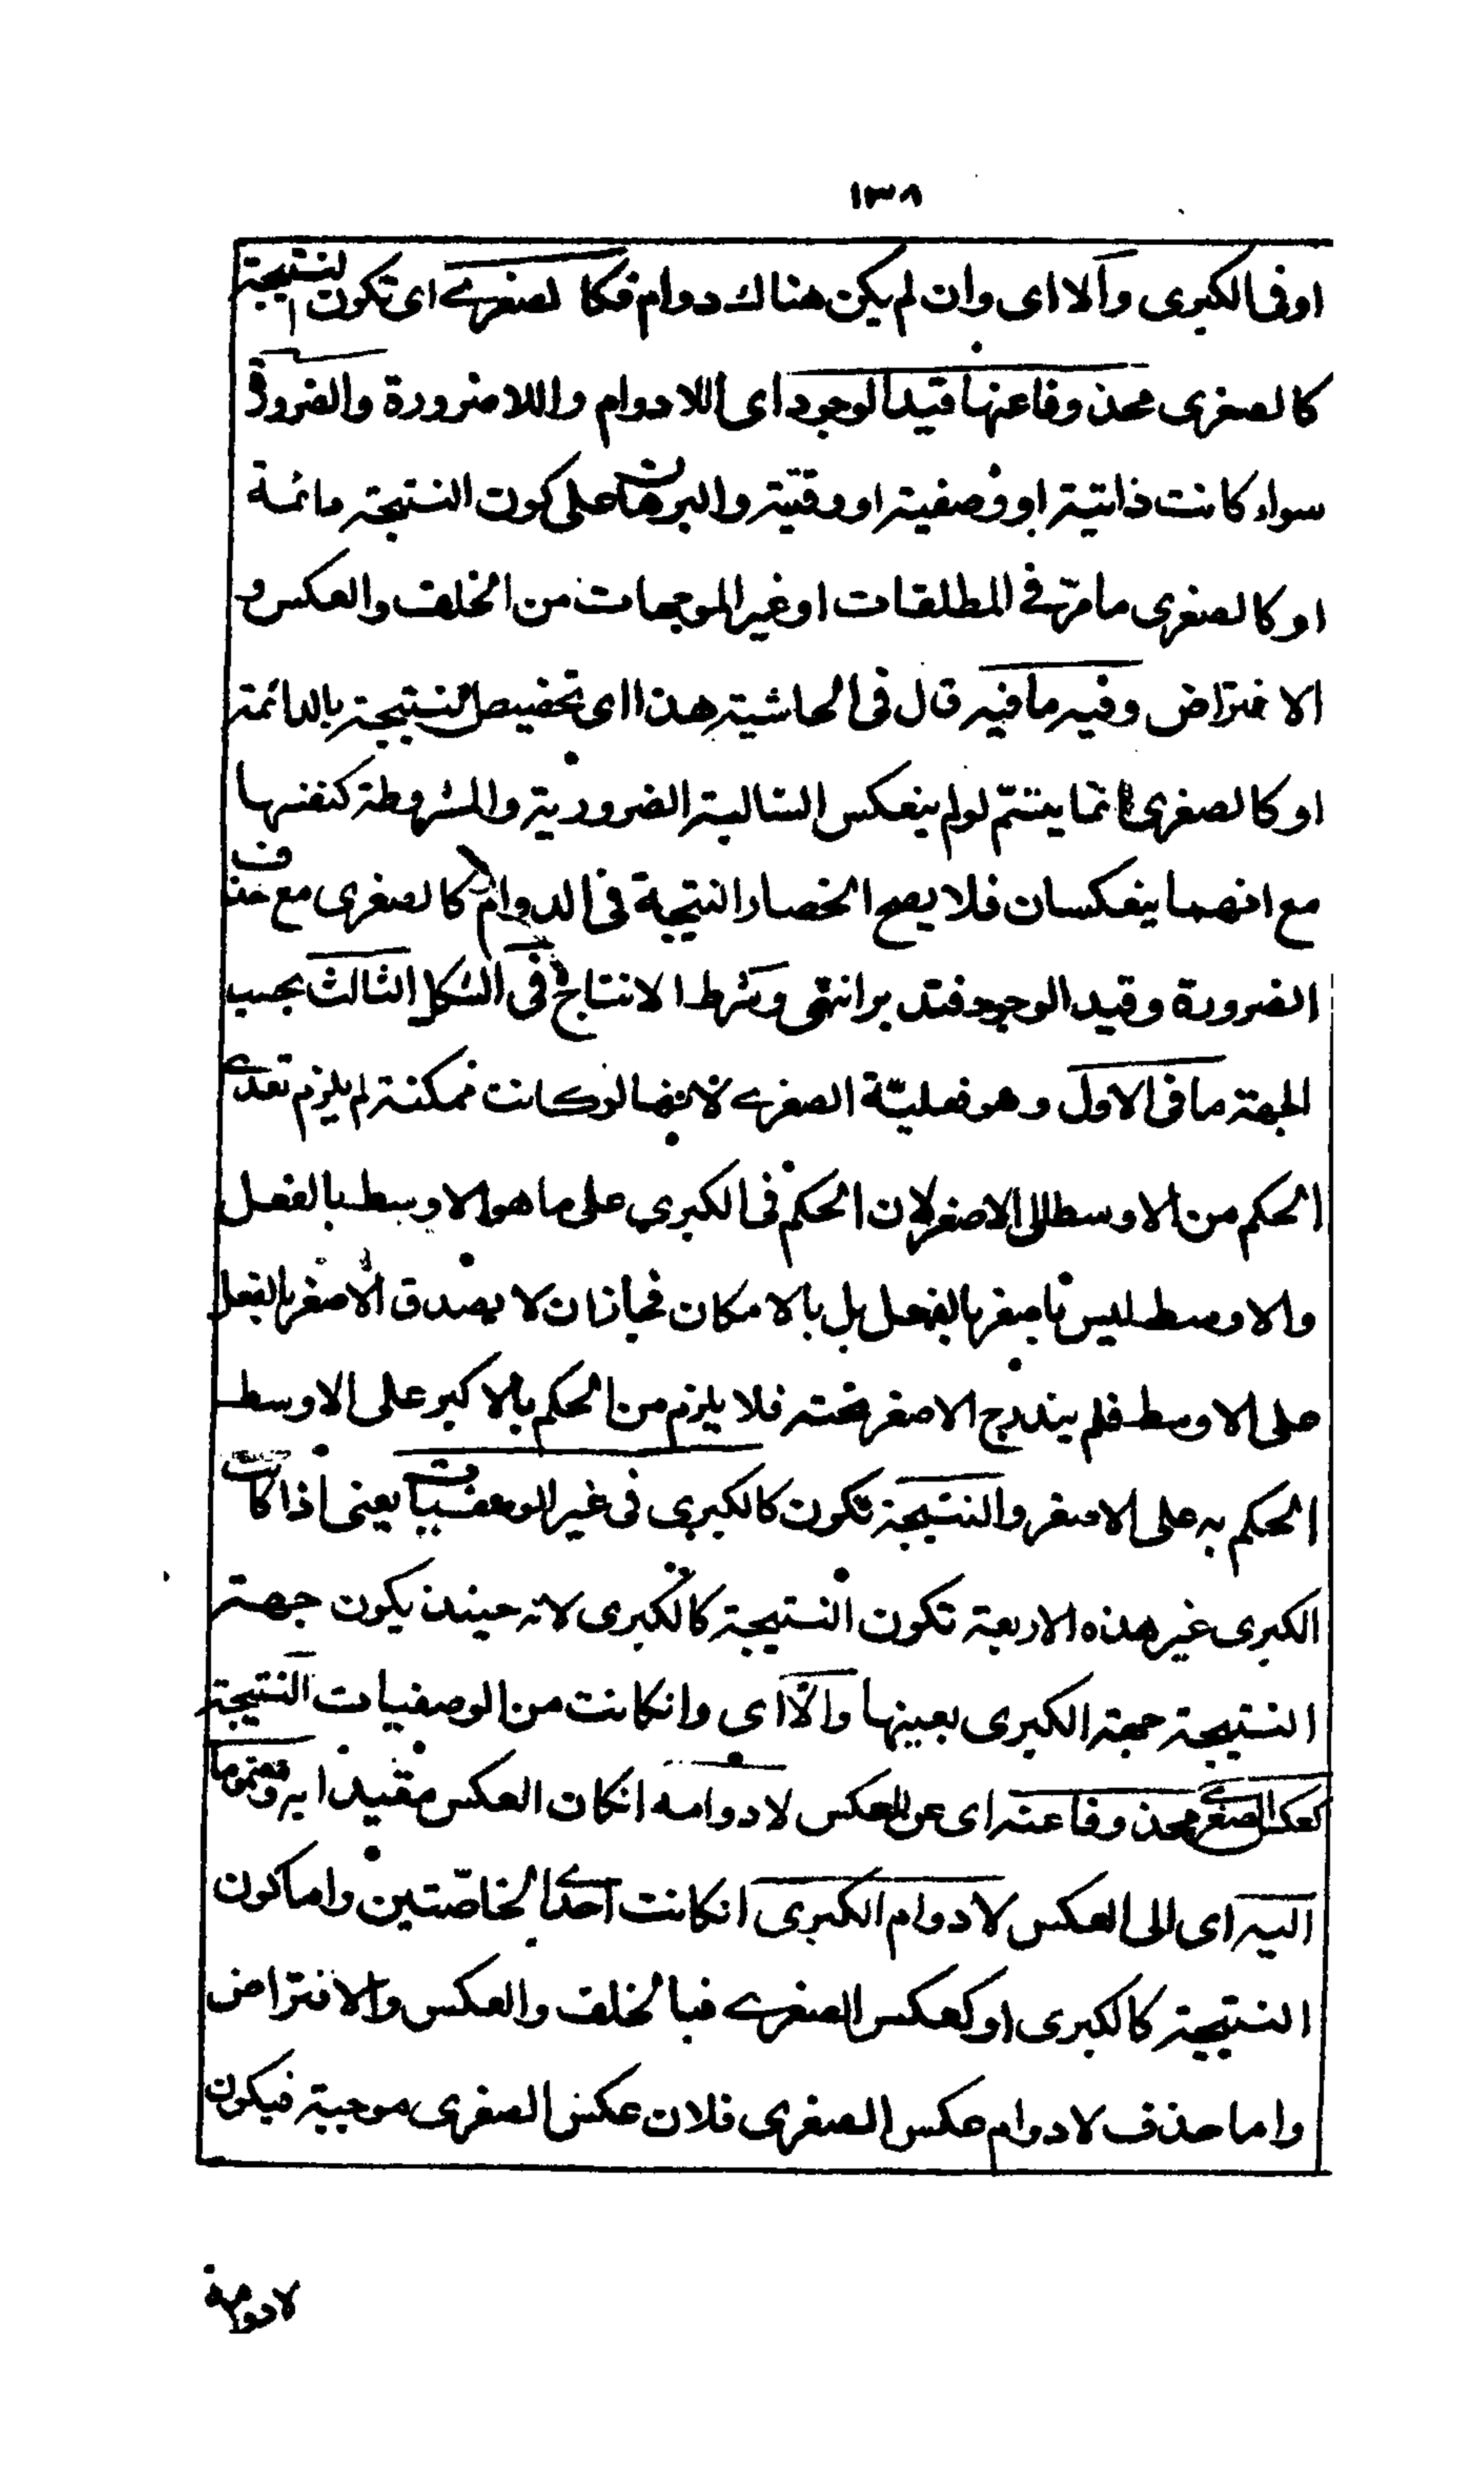 ١٣٨
او فى الكبرى والا اى وان لم يكن هناك دوام فكا لصغرے اى تكون النتيجة
كالصغرى محذوفا عنها قيد الوجود اى اللادوام واللاضرورة والضرورة
سواء كانت ذاتية او وصفية او وقتية والبرهان على كون النتيجة دائمة
او كالصغرى ما مرّ فے المطلقات او غير الموجهات من الخلف والعكس و
الافتراض وفيه ما فيه قال فى الحاشية هذا اى تخصيص النتيجة بالدائمة
او كالصغرى انما يتمّ لو لم ينعكس السالبة الضرورية والمشروطة كنفسها
مع انهما ينعكسان فلا يصح انحصار النتيجة فى الدوام كالصغرى مع حذف
الضرورة وقيد الوجود فتدبر انتهى وشرط الانتاج فى الشكل الثالث بحسب
الجهة ما فى الاول وهو فعليّة الصغرے لانها لو كانت ممكنة لم يلزم تعدے
الحكم من الاوسط الى الاصغر لان الحكم فى الكبرى على ما هو الاوسط بالفعل
والاوسط ليس باصغر بالفعل بل بالامكان فجاز ان لا يصدق الاصغر بالفعل
على الاوسط فلم يندرج الاصغر تحته فلا يلزم من الحكم بالاكبر على الاوسط
الحكم به على الاصغر والنتيجة تكون كالكبرى فى غير الوصفيات يعنى اذا كانت
الكبرى غير هذه الاربعة تكون النتيجة كالكبرى لانه حينئذ يكون جهة
النتيجة جهة الكبرى بعينها والّا اى وانكانت من الوصفيات النتيجة
كعكس الصغرے محذوفا عنه اى عن العكس لادوامه انكان العكس مقيدا به ومضموما
اليه اى الى العكس لادوام الكبرى انكانت احدے الخاصّتين واما كون
النتيجة كالكبرى او كعكس الصغرے فبالخلف والعكس والافتراض
واما حذف لادوام عكس الصغرى فلان عكس الصغرى موجبة فيكون
لادوامه